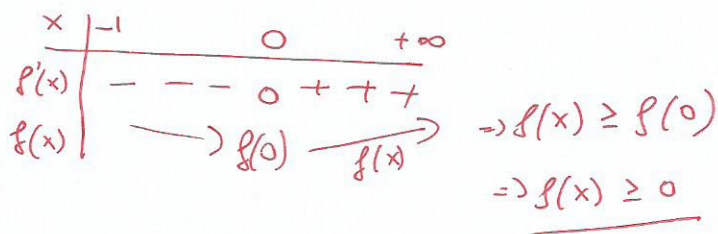 x | -1 0 +∞
f'(x) | - - - 0 + + +
f(x) | → f(0) → f(x)
=> f(x) ≥ f(0)
=> f(x) ≥ 0